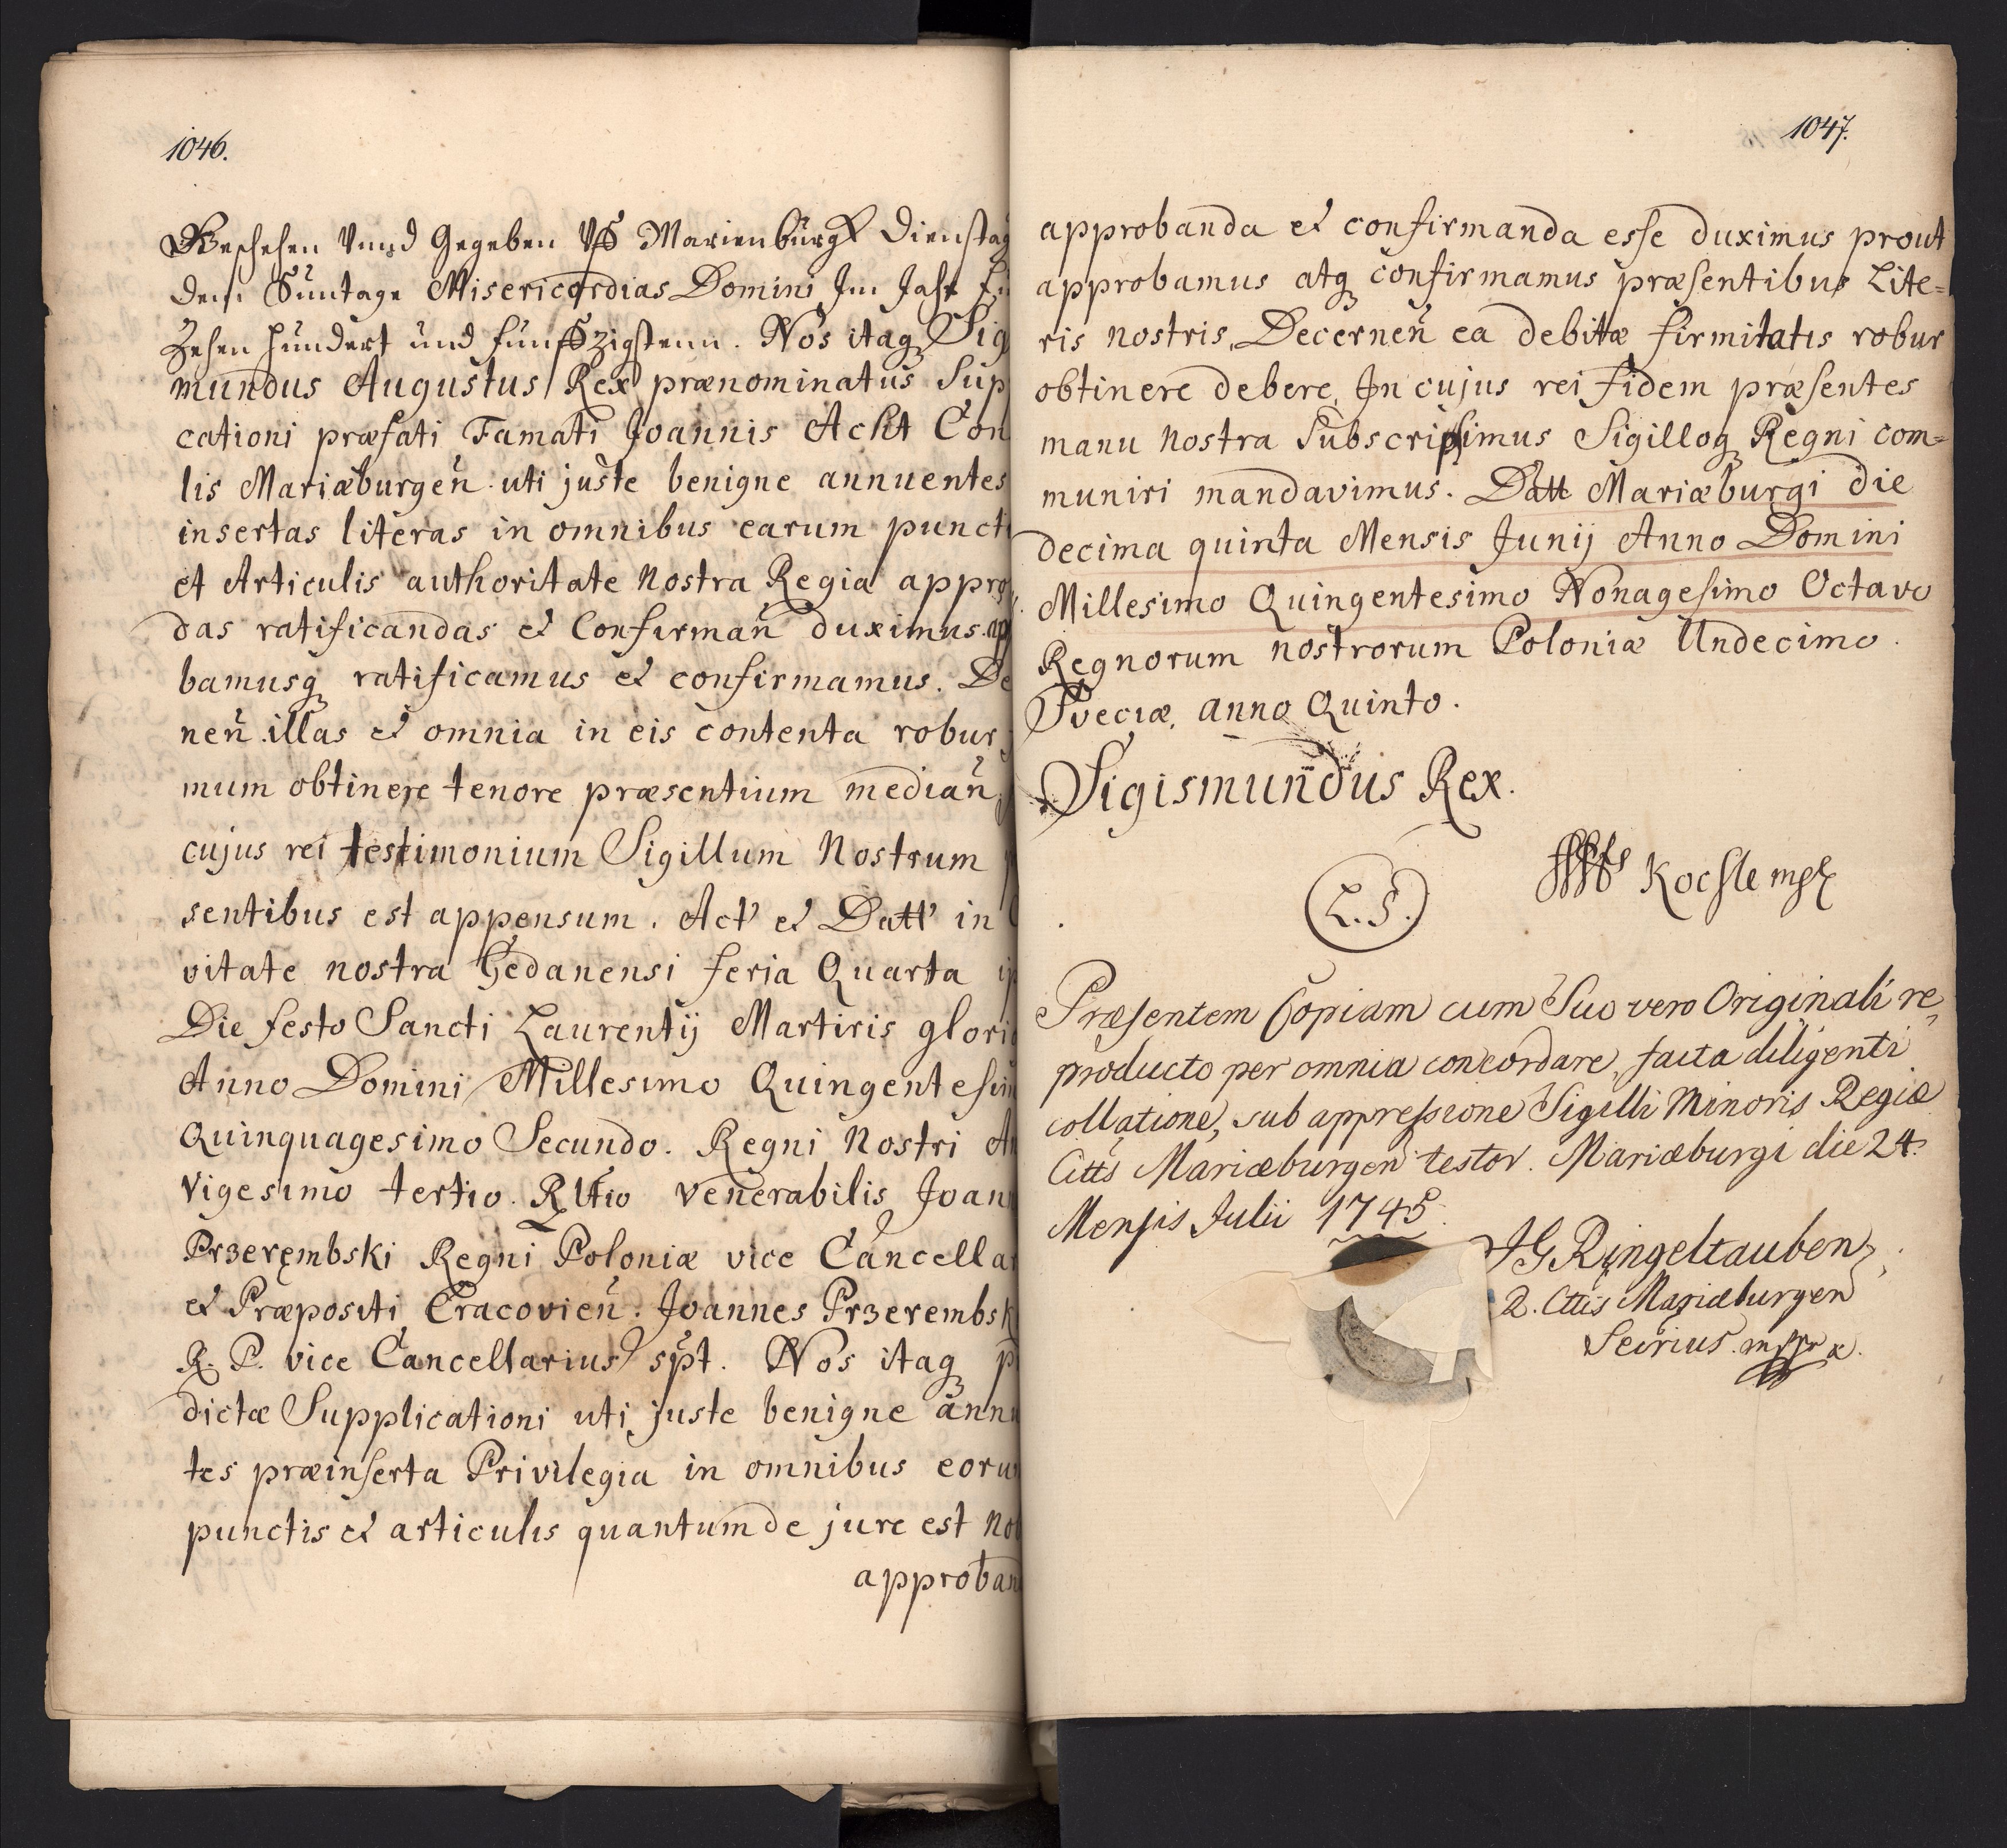 1046.
Geschehen Vnnd Gegeben Vff Marienburgk Dienstag
dem Suntage Misericordias Domini Im Jahr
Zehen hundert und funffzigstenn. Nos itaq Sig
mundus Augustus Rex prænominatus Sup
cationi præfati Famati Joannis Acht Con
lis Mariæburgen̄ uti juste benigne annuentes
insertas literas in omnibus earum punct
et Articulis authoritate Nostra Regia appro
das ratificandas et Confirman̄ duximus. ap
bamusq ratificamus et confirmamus. De
nen̄ illas et omnia in eis contenta robur
mum obtinere tenore præsentium median̄
cujus rei testimonium Sigillum Nostrum
sentibus est appensum. Act' et Datt' in
vitate nostra Gedanensi feria Quarta
Die festo Sancti Laurentij Martiris glorio
Anno Domini Millesimo Quingentesim
Quinquagesimo Secundo. Regni Nostri An
Vigesimo tertio. Rltio Venerabilis Joan
Przerembski Regni Poloniæ vice Cancella
et Præpositi Cracovien̄. Joannes Przerembsk
R. P. vice Cancellarius spt. Nos itaq p
dictæ Supplicationi uti juste benigne annu
tes præinserta Privilegia in omnibus eoru
punctis et articulis quantum de jure est No
approban
1047.
approbanda et confirmanda esse duximus prout
approbamus atq confirmamus præsentibus Lite=
ris nostris, Decernen̄ ea debitæ firmitatis robur
obtinere debere, In cujus rei fidem præsentes
manu nostra Subscripsimus Sigilloq Regni com=
muniri mandavimus. Datt Mariæburgi die
decima quinta Mensis Junij Anno Domini
Millesimo Quingentesimo Nonagesimo Octavo
Regnorum nostrorum Poloniæ Undecimo.
Sveciæ, anno Quinto.
Sigismundus Rex.
L.S.
Præsentem Copiam cum Suo vero Originali re
producto per omnia concordare, facta diligenti
collatione, sub appressione Sigilli Minoris Regiæ
Cittis Mariæburgen̄ testor. Mariæburgi die 24.
Mensis Julii 1745.
JG Ringeltauben,
R. Cttis Mariæburgen
Secrius. mppr